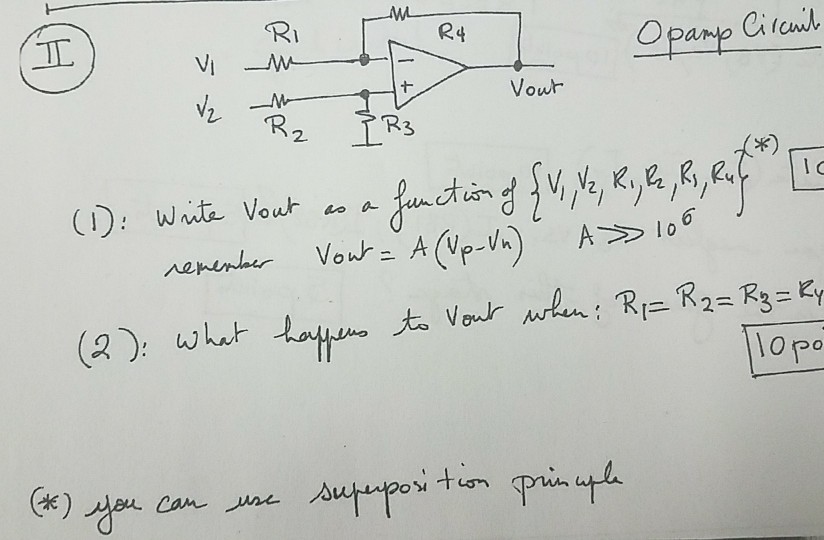 II
Opamp Circuit
R1
R4
V1
V2
R2
R3
−
+
Vout
(1): Write Vout as a function of {V1, V2, R1, R2, R3, R4}(*)
remember Vout = A(Vp-Vn) A >> 10^6
(2): What happens to Vout when: R1 = R2 = R3 = R4
10 po
(*) you can use superposition principle